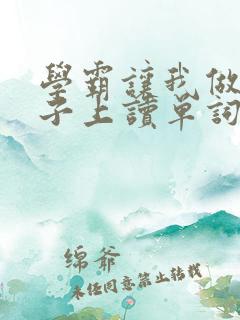 學霸讓我做
子上讀單詞
绵爷
未经同意禁止转载